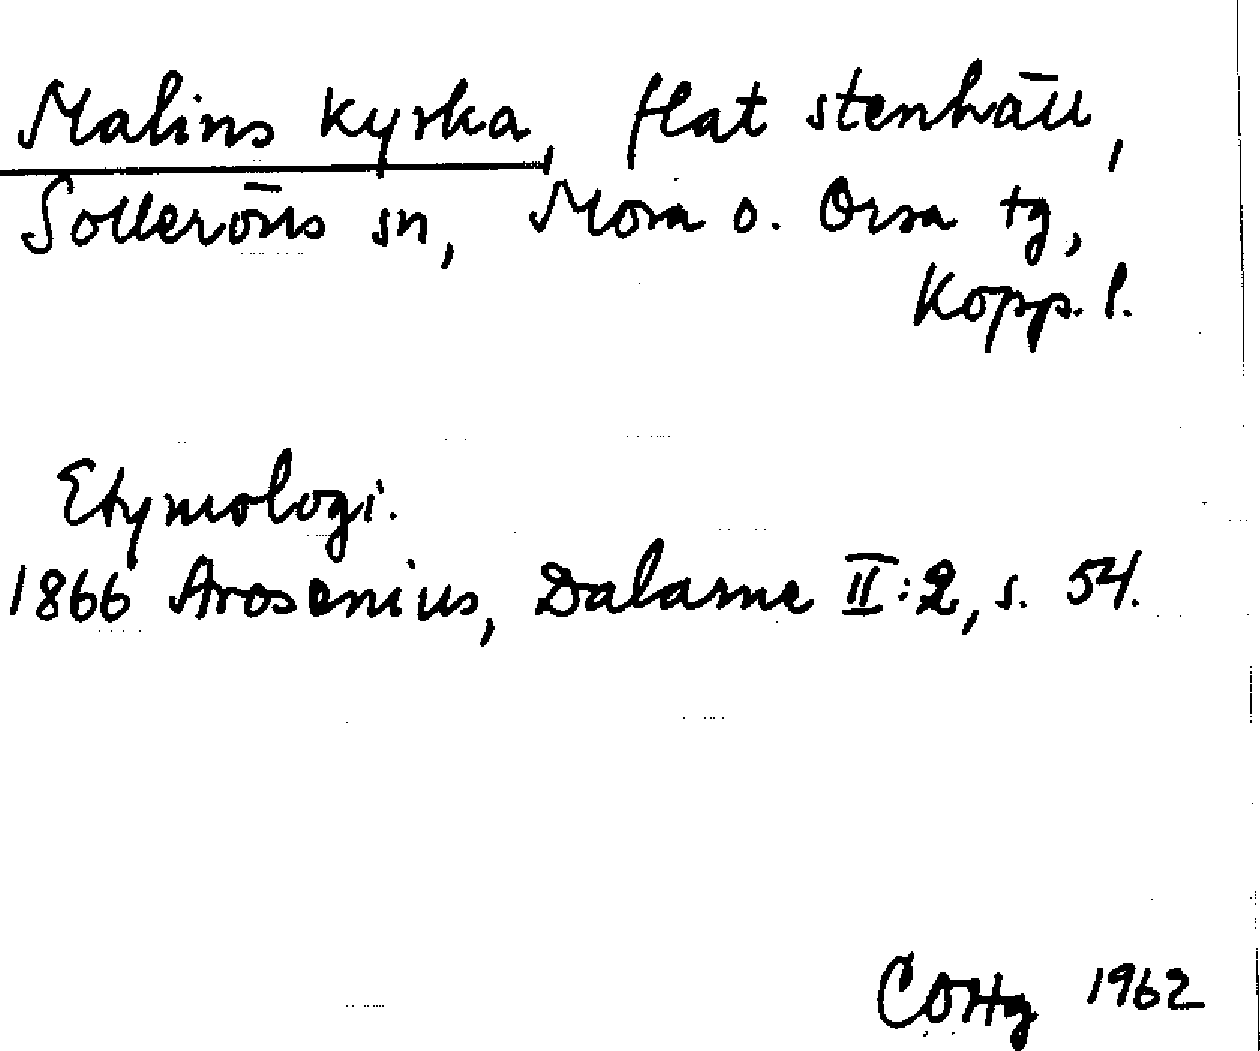 Malins kyrka, flat stenhäll,
Solleröns sn, Mora o. Orsa tg,
Kopp. l.
Etymologi.
1866 Arosenius, Dalarne II:2, s. 54.
1962